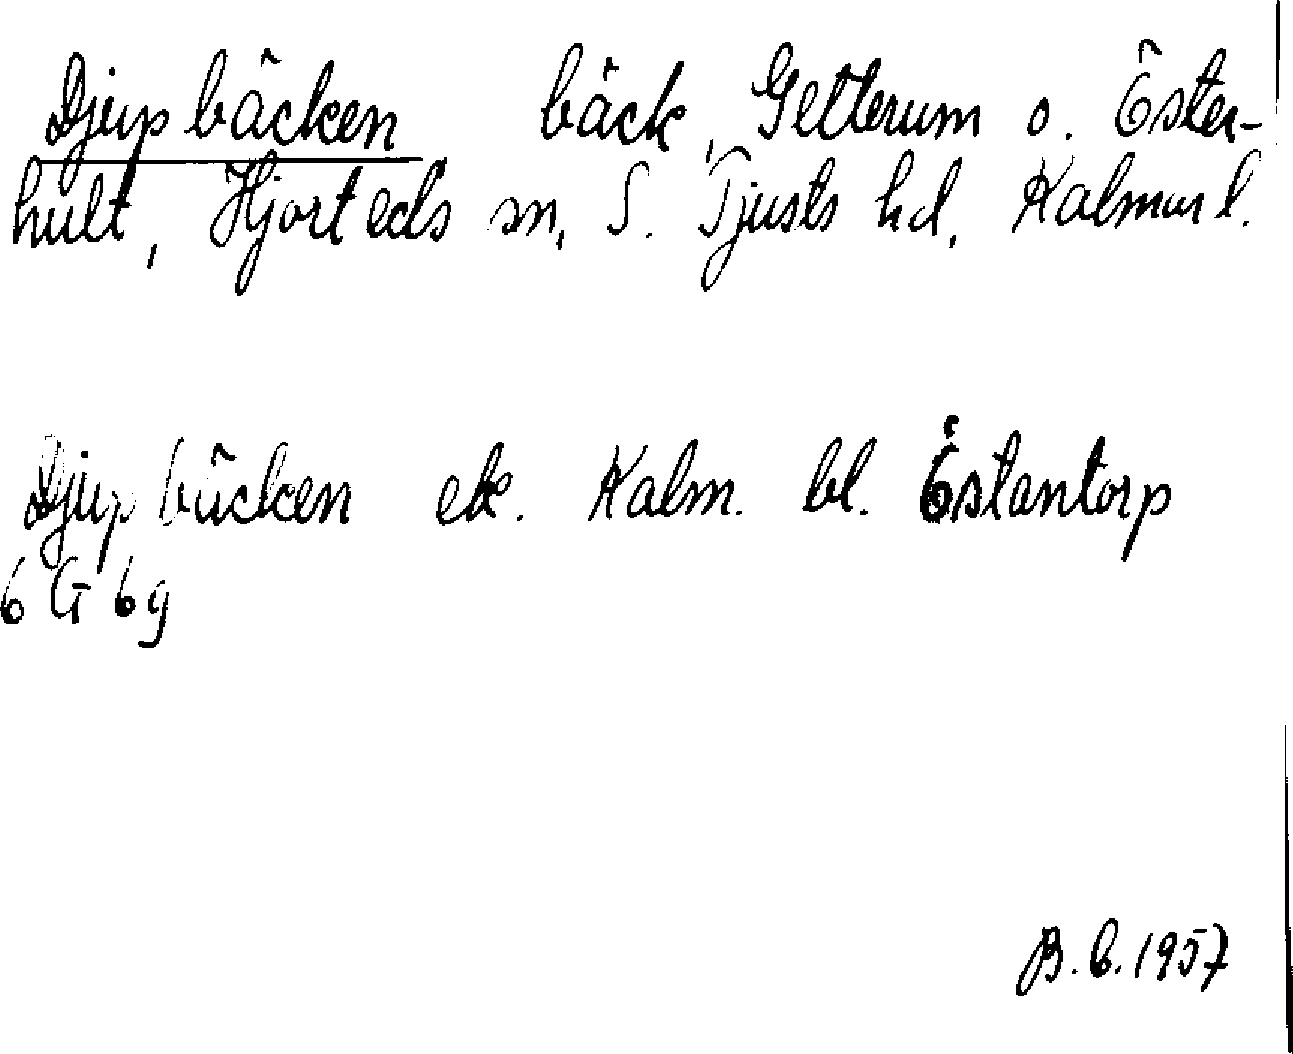 Djupbäcken bäck, Getterum o. Öster-
hult, Hjorteds sn, S. Tjusts hd, Kalmar l.
Djupbäcken ek. Kalm. bl. Östantorp
6 G 6g
B.C. 1957